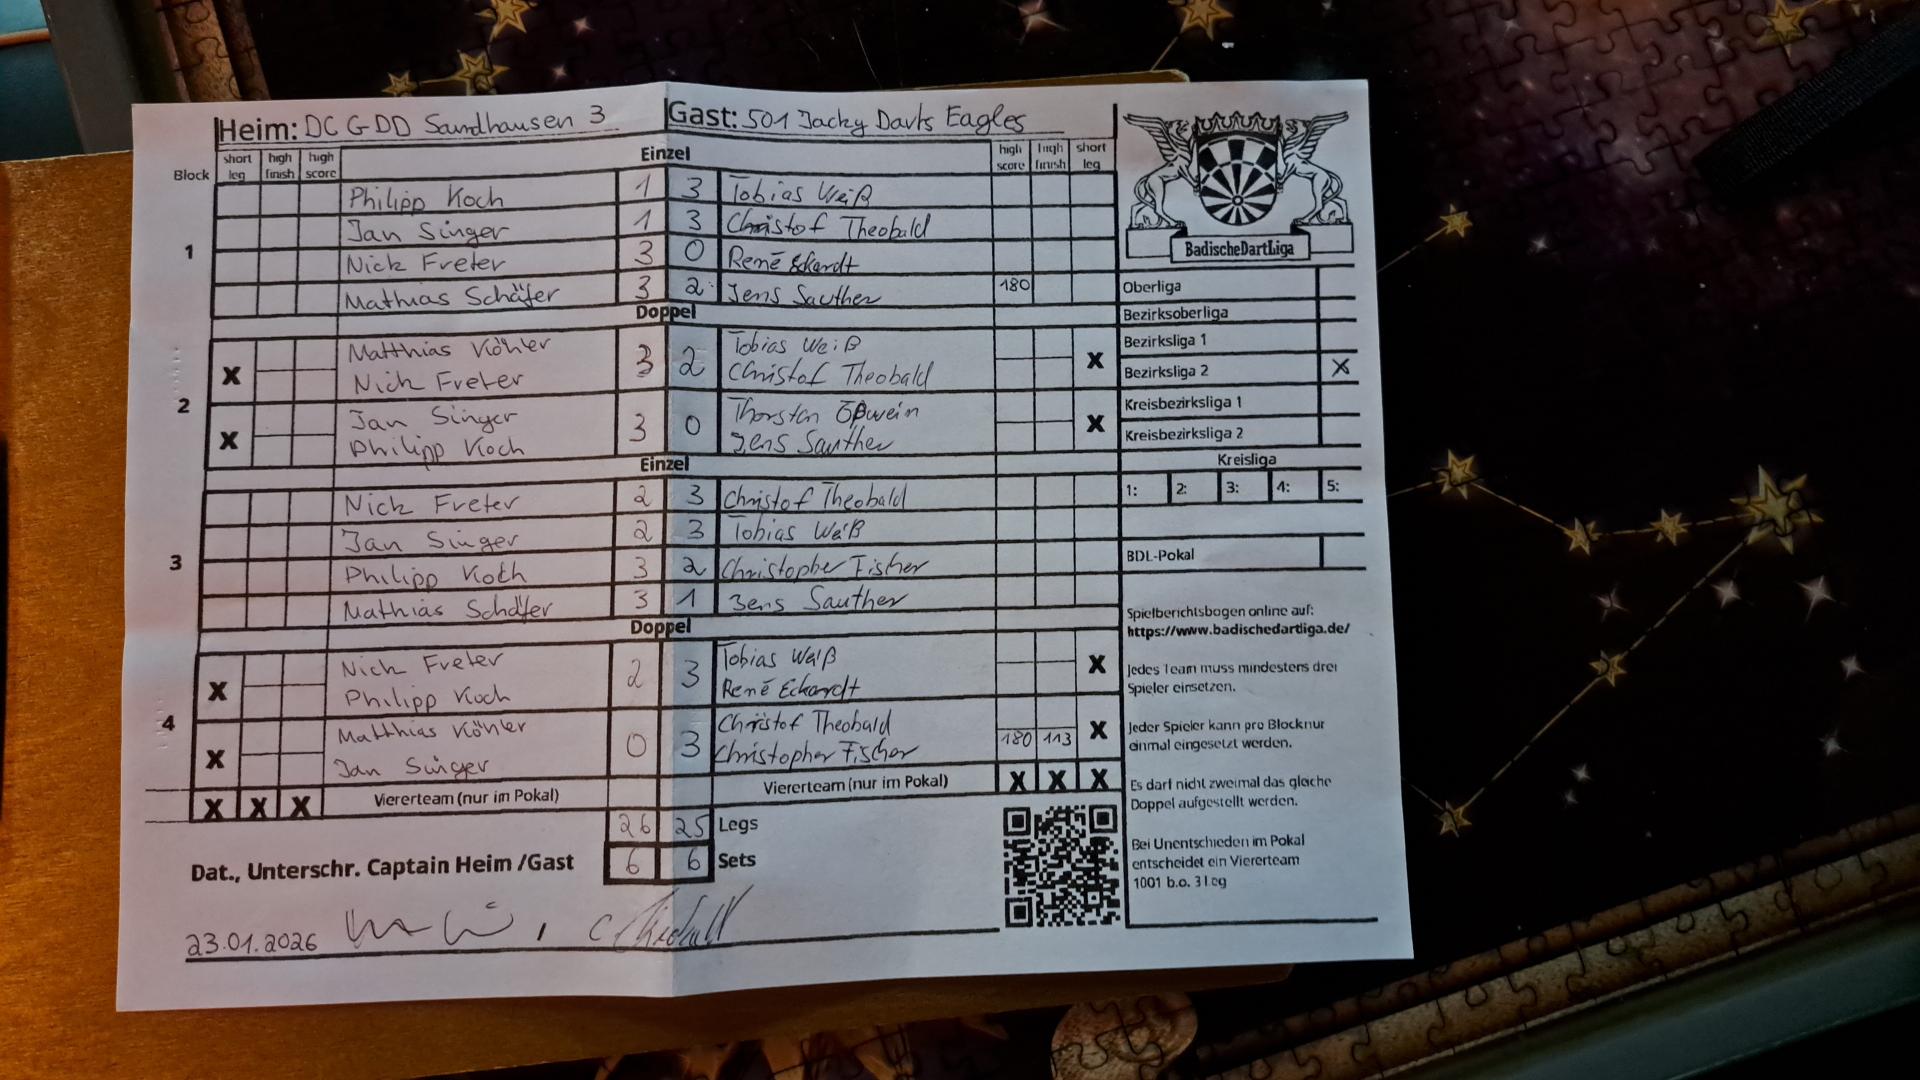 Heim: DC GDD Sandhausen 3 Gast: 501 Jacky Darts Eagles
Block short leg high finish high score Einzel high score high finish short leg
1
Philipp Koch 1 3 Tobias Weiß
Jan Singer 1 3 Christof Theobald
Nick Freter 3 0 René Eckardt
Mathias Schäfer 3 2 Jens Sauther 180
Doppel
2
X Matthias Köhler 3 2 Tobias Weiß X
Nick Freter Christof Theobald
X Jan Singer 3 0 Thorsten Oßwein X
Philipp Koch Jens Sauther
Einzel
3
Nick Freter 2 3 Christof Theobald
Jan Singer 2 3 Tobias Weiß
Philipp Koch 3 2 Christopher Fischer
Mathias Schäfer 3 1 Jens Sauther
Doppel
4
X Nick Freter 2 3 Tobias Weiß X
Philipp Koch René Eckardt
X Matthias Köhler 0 3 Christof Theobald X
Jan Singer Christopher Fischer 180 113
X X X Viererteam (nur im Pokal) Viererteam (nur im Pokal) X X X
26 25 Legs
Dat., Unterschr. Captain Heim /Gast 6 6 Sets
23.01.2026
BadischeDartLiga
Oberliga
Bezirksoberliga
Bezirksliga 1
Bezirksliga 2 X
Kreisbezirksliga 1
Kreisbezirksliga 2
Kreisliga
1: 2: 3: 4: 5:
BDL-Pokal
Spielberichtsbogen online auf:
https://www.badischedartliga.de/
Jedes Team muss mindestens drei
Spieler einsetzen.
Jeder Spieler kann pro Blocknur
einmal eingesetzt werden.
Es darf nicht zweimal das gleiche
Doppel aufgestellt werden.
Bei Unentschieden im Pokal
entscheidet ein Viererteam
1001 b.o. 3 Leg